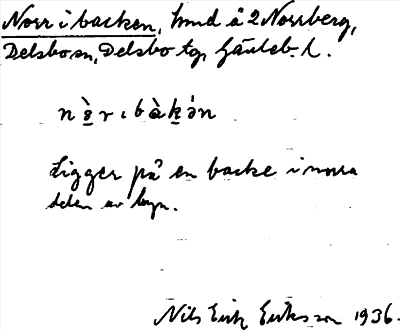 Norr i backen, hmd å 2 Norrberg,
Delsbo sn, Delsbo tg, Gävleb. l.
nòrıbàkän
Ligger på en backe i norra
delen av byn.
Nils Erik Eriksson 1936.